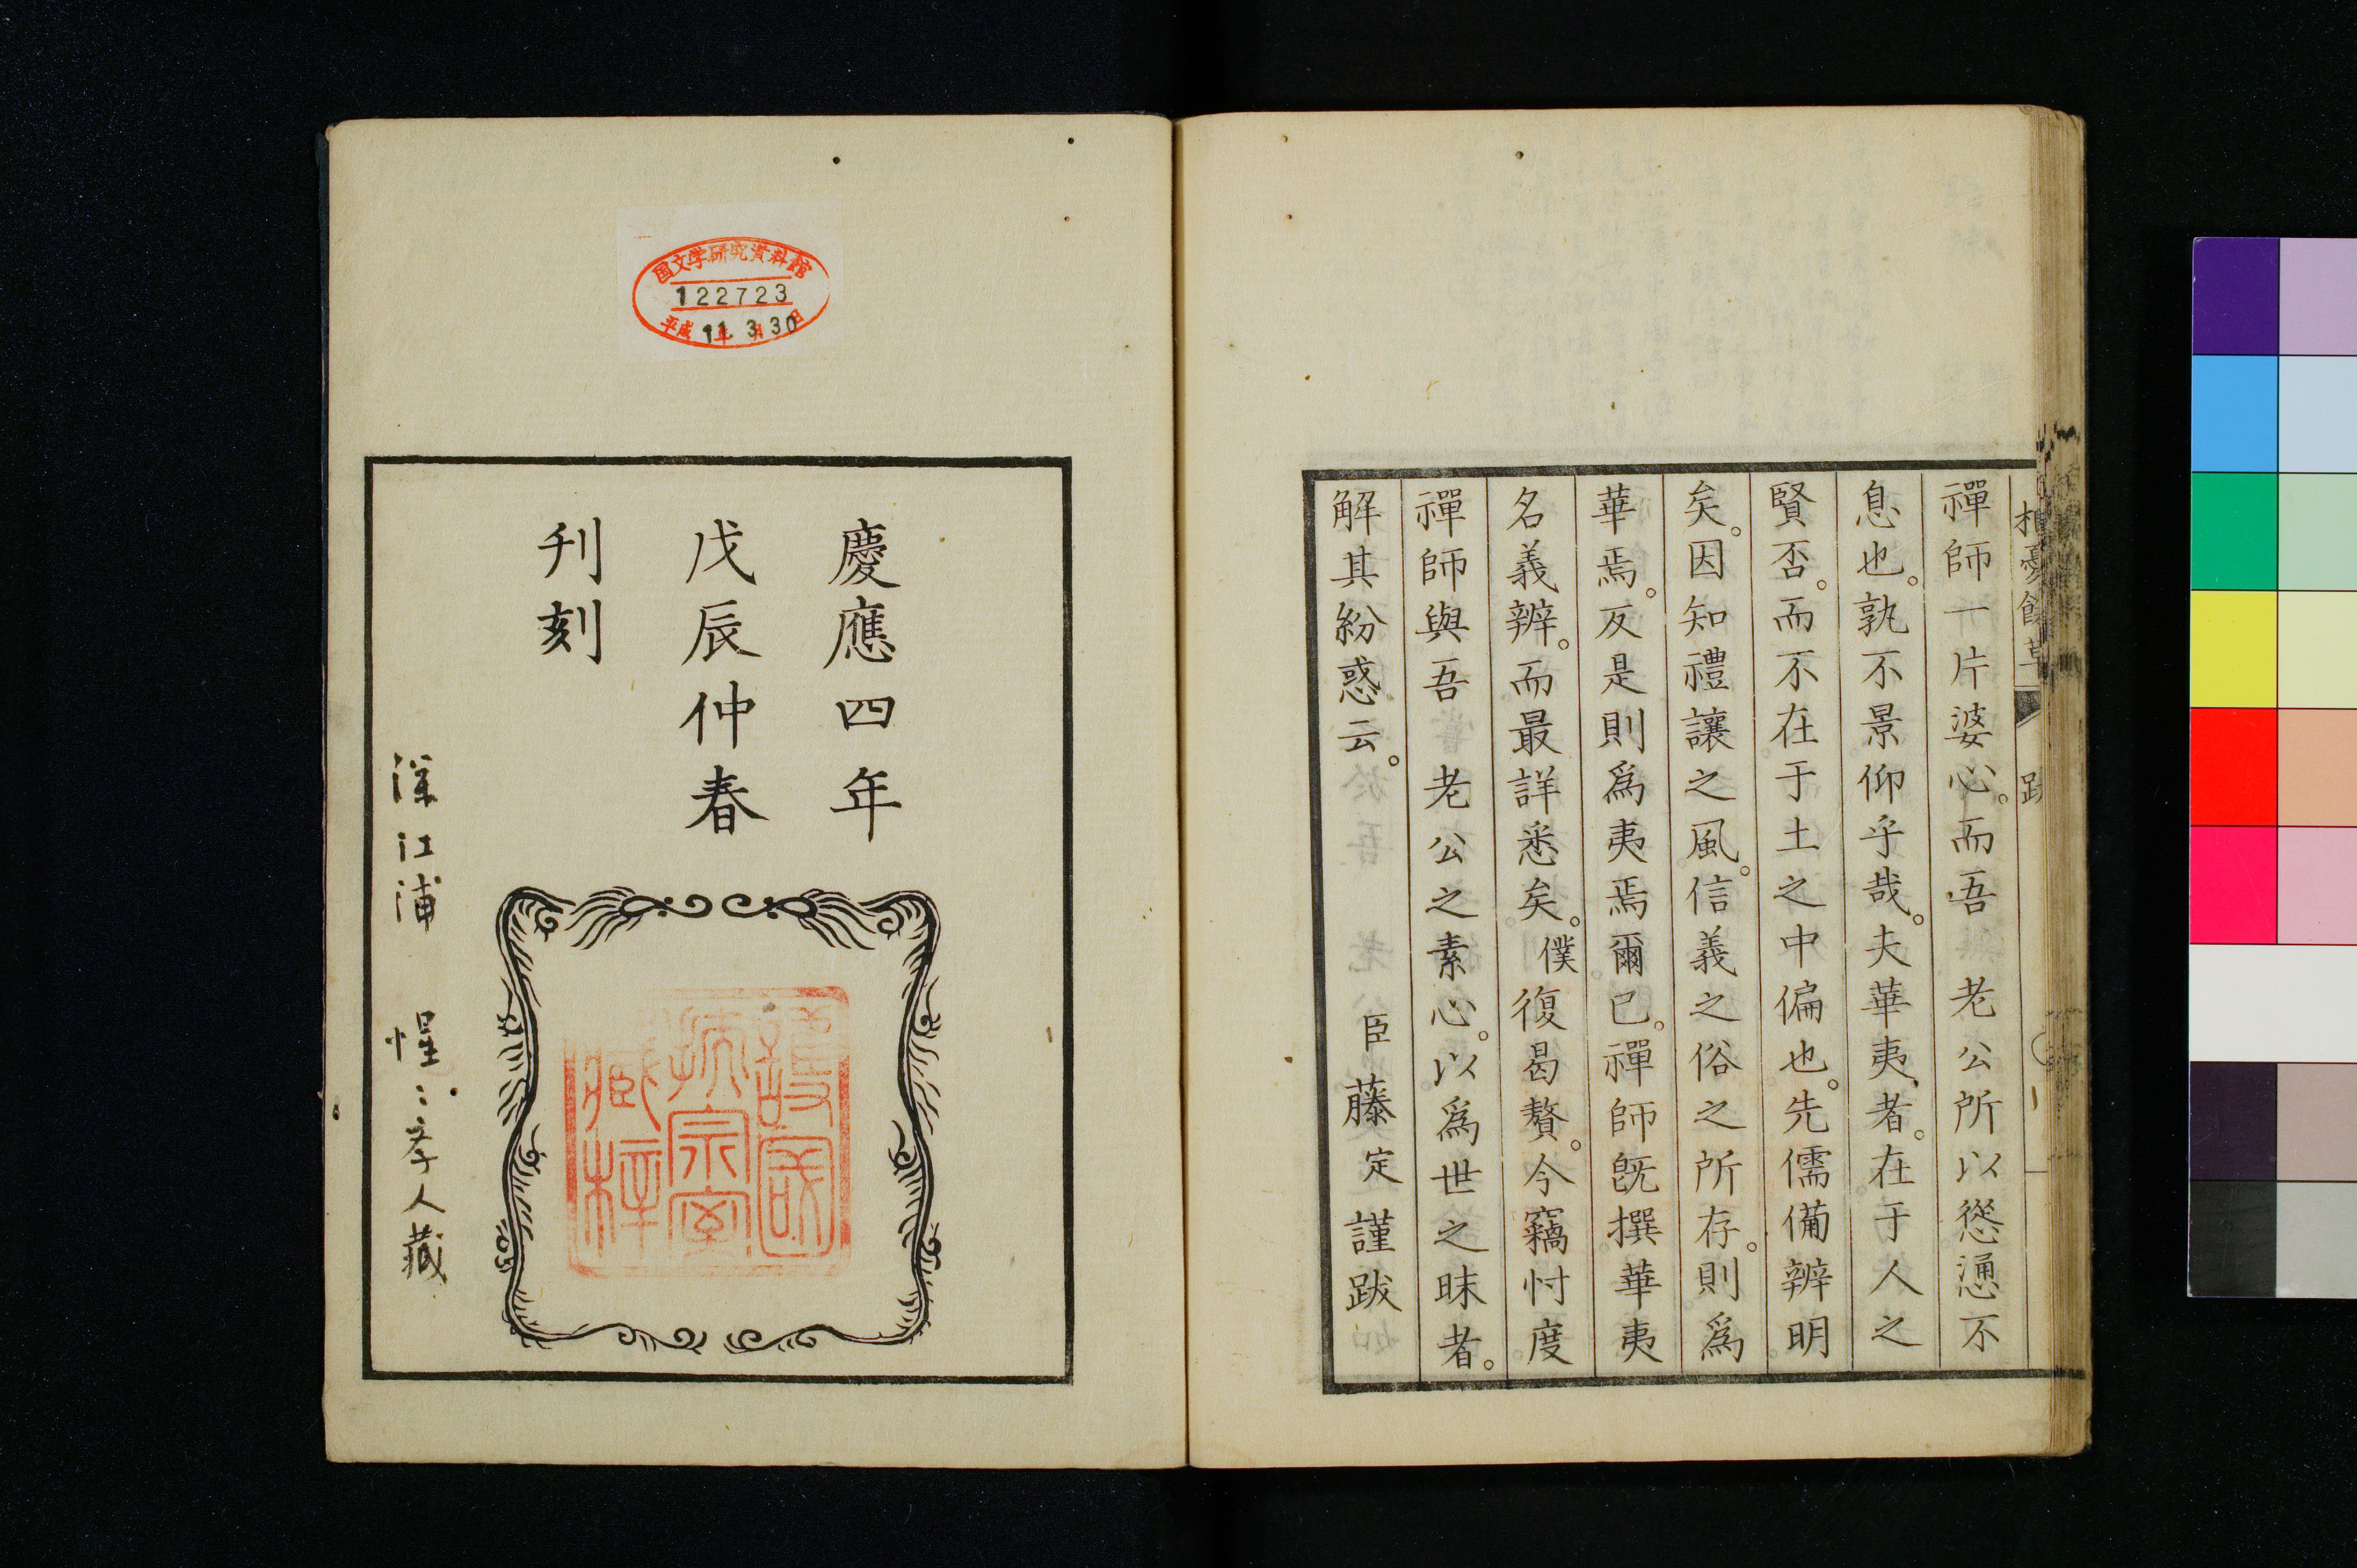 禪師一片婆心。而吾　老公所以慫慂不
息也。孰不景仰乎哉。夫華夷者。在于人之
賢否。而不在于土之中偏也。先儒備辨明
矣。因知禮讓之風。信義之俗之所存。則爲
華焉。反是則爲夷焉爾已。禪師既撰華夷
名義辨。而最詳悉矣。僕復曷贅。今竊忖度
禪師與吾　老公之素心。以爲世之昧者。
解其紛惑云。　臣　藤定謹跋
慶應四年
戊辰仲春
刋刻
護國
號宗室
藏梓
深江浦　惺〻孝人藏
国文学研究資料館
122723
平成11年3月30日